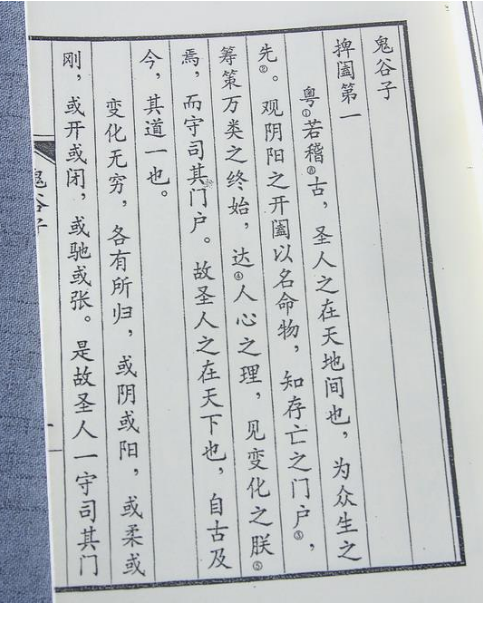 鬼谷子
捭阖第一
粤①若稽古，圣人之在天地间也，为众生之
先②。观阴阳之开阖以名命物，知存亡之门户③，
筹策万类之终始，达④人心之理，见变化之朕⑤
焉，而守司其门户。故圣人之在天下也，自古及
今，其道一也。
变化无穷，各有所归，或阴或阳，或柔或
刚，或开或闭，或驰或张。是故圣人一守司其门
鬼谷子